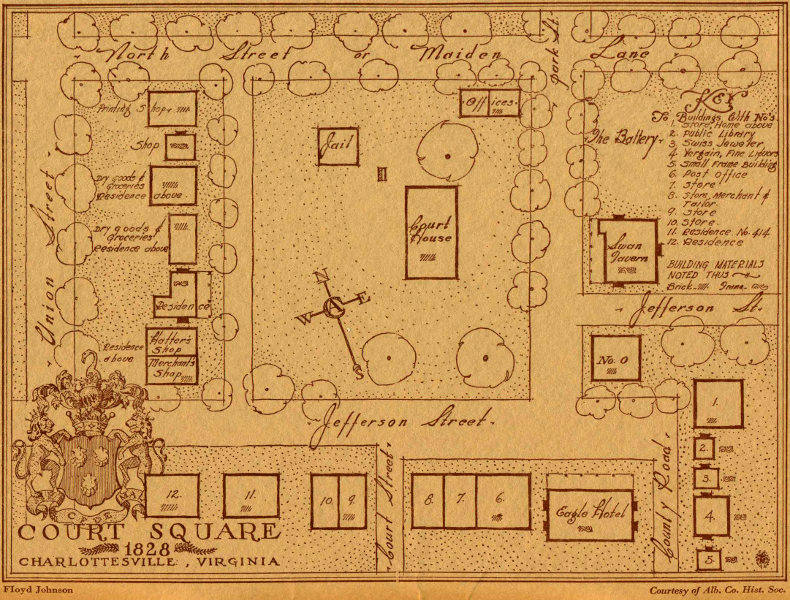 North Street or Maiden Lane
York St.
Union Street
Printing Shop
Shop
Dry goods &
Groceries
Residence above
Dry goods &
Groceries
Residence above
Residence
Residence
above
Hatter's
Shop
Merchant's
Shop
Offices
Jail
Court
House
N
E
W
S
The Battery
Swan
Tavern
KEY
To Buildings With No's
1. Store, Home above
2. Public Library
3. Swiss Jeweler
4. Yergain, Fine Liquors
5. Small Frame Building
6. Post Office
7. Store
8. Store, Merchant &
Tailor.
9. Store
10. Store.
11. Residence, No. 414
12. Residence
BUILDING MATERIALS
NOTED THUS
Brick
Jefferson St.
No. 0
Jefferson Street
1.
2.
3.
4.
5.
County Road
Court Street
12.
11.
10.
9.
8.
7.
6.
Eagle Hotel
COURT SQUARE
1828
CHARLOTTESVILLE, VIRGINIA
Floyd Johnson
Courtesy of Alb. Co. Hist. Soc.